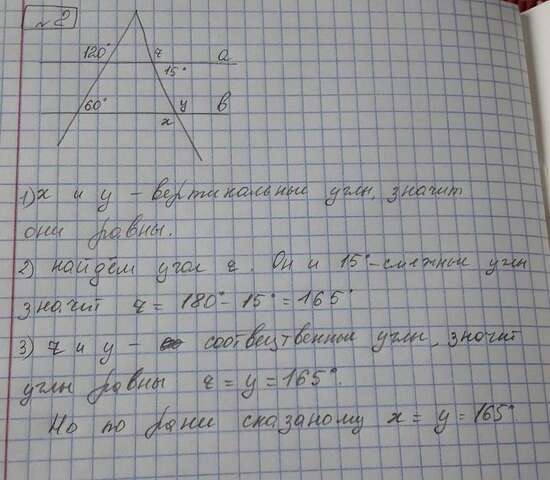 №2
120° z a
15°
60° y в
x
1) x и y – вертикальные углы, значит
они равны.
2) найдём угол z. Он и 15° – смежные углы
значит z = 180° - 15° = 165°
3) z и y – соотвецтвенные углы, значит
углы равны z = y = 165°.
Но по рани сказаному x = y = 165°